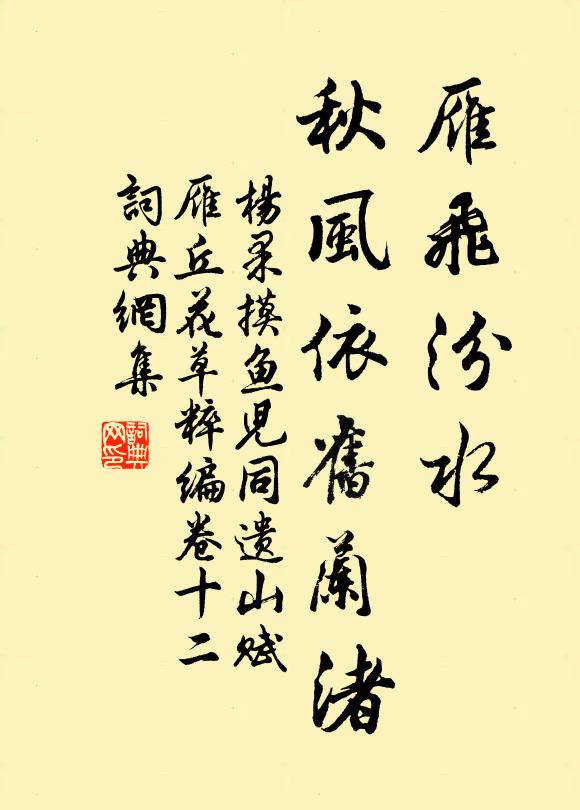 雁飛汾水
秋風依舊蘭渚
楊果摸鱼児同遗山赋
雁丘花草粹編卷十二
詞典網集
詞典网印